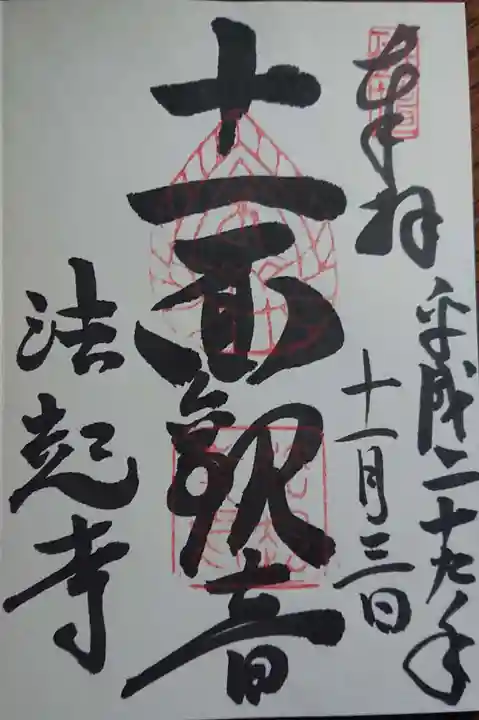 奉拝
平成二十九年
十一月三日
十一面観音
法起寺